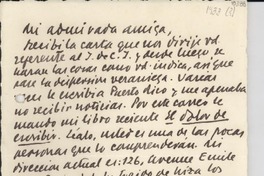 1933 [?]
Mi admirada amiga,
Recibí la carta que nos dirije vd.
referente al I. de C. I. y desde luego se
harán las cosas como vd. indica, así que
pase la dispersión veraniega. Varias
le escribía Puerto Rico y me apenaba
no recibir noticias. Por este correo le
mando mi libro reciente El dolor de
escribir. Léalo, usted es una de las pocas
personas que lo comprenderán. Mi
dirección actual es: 126, Avenue Emile
de Niza los